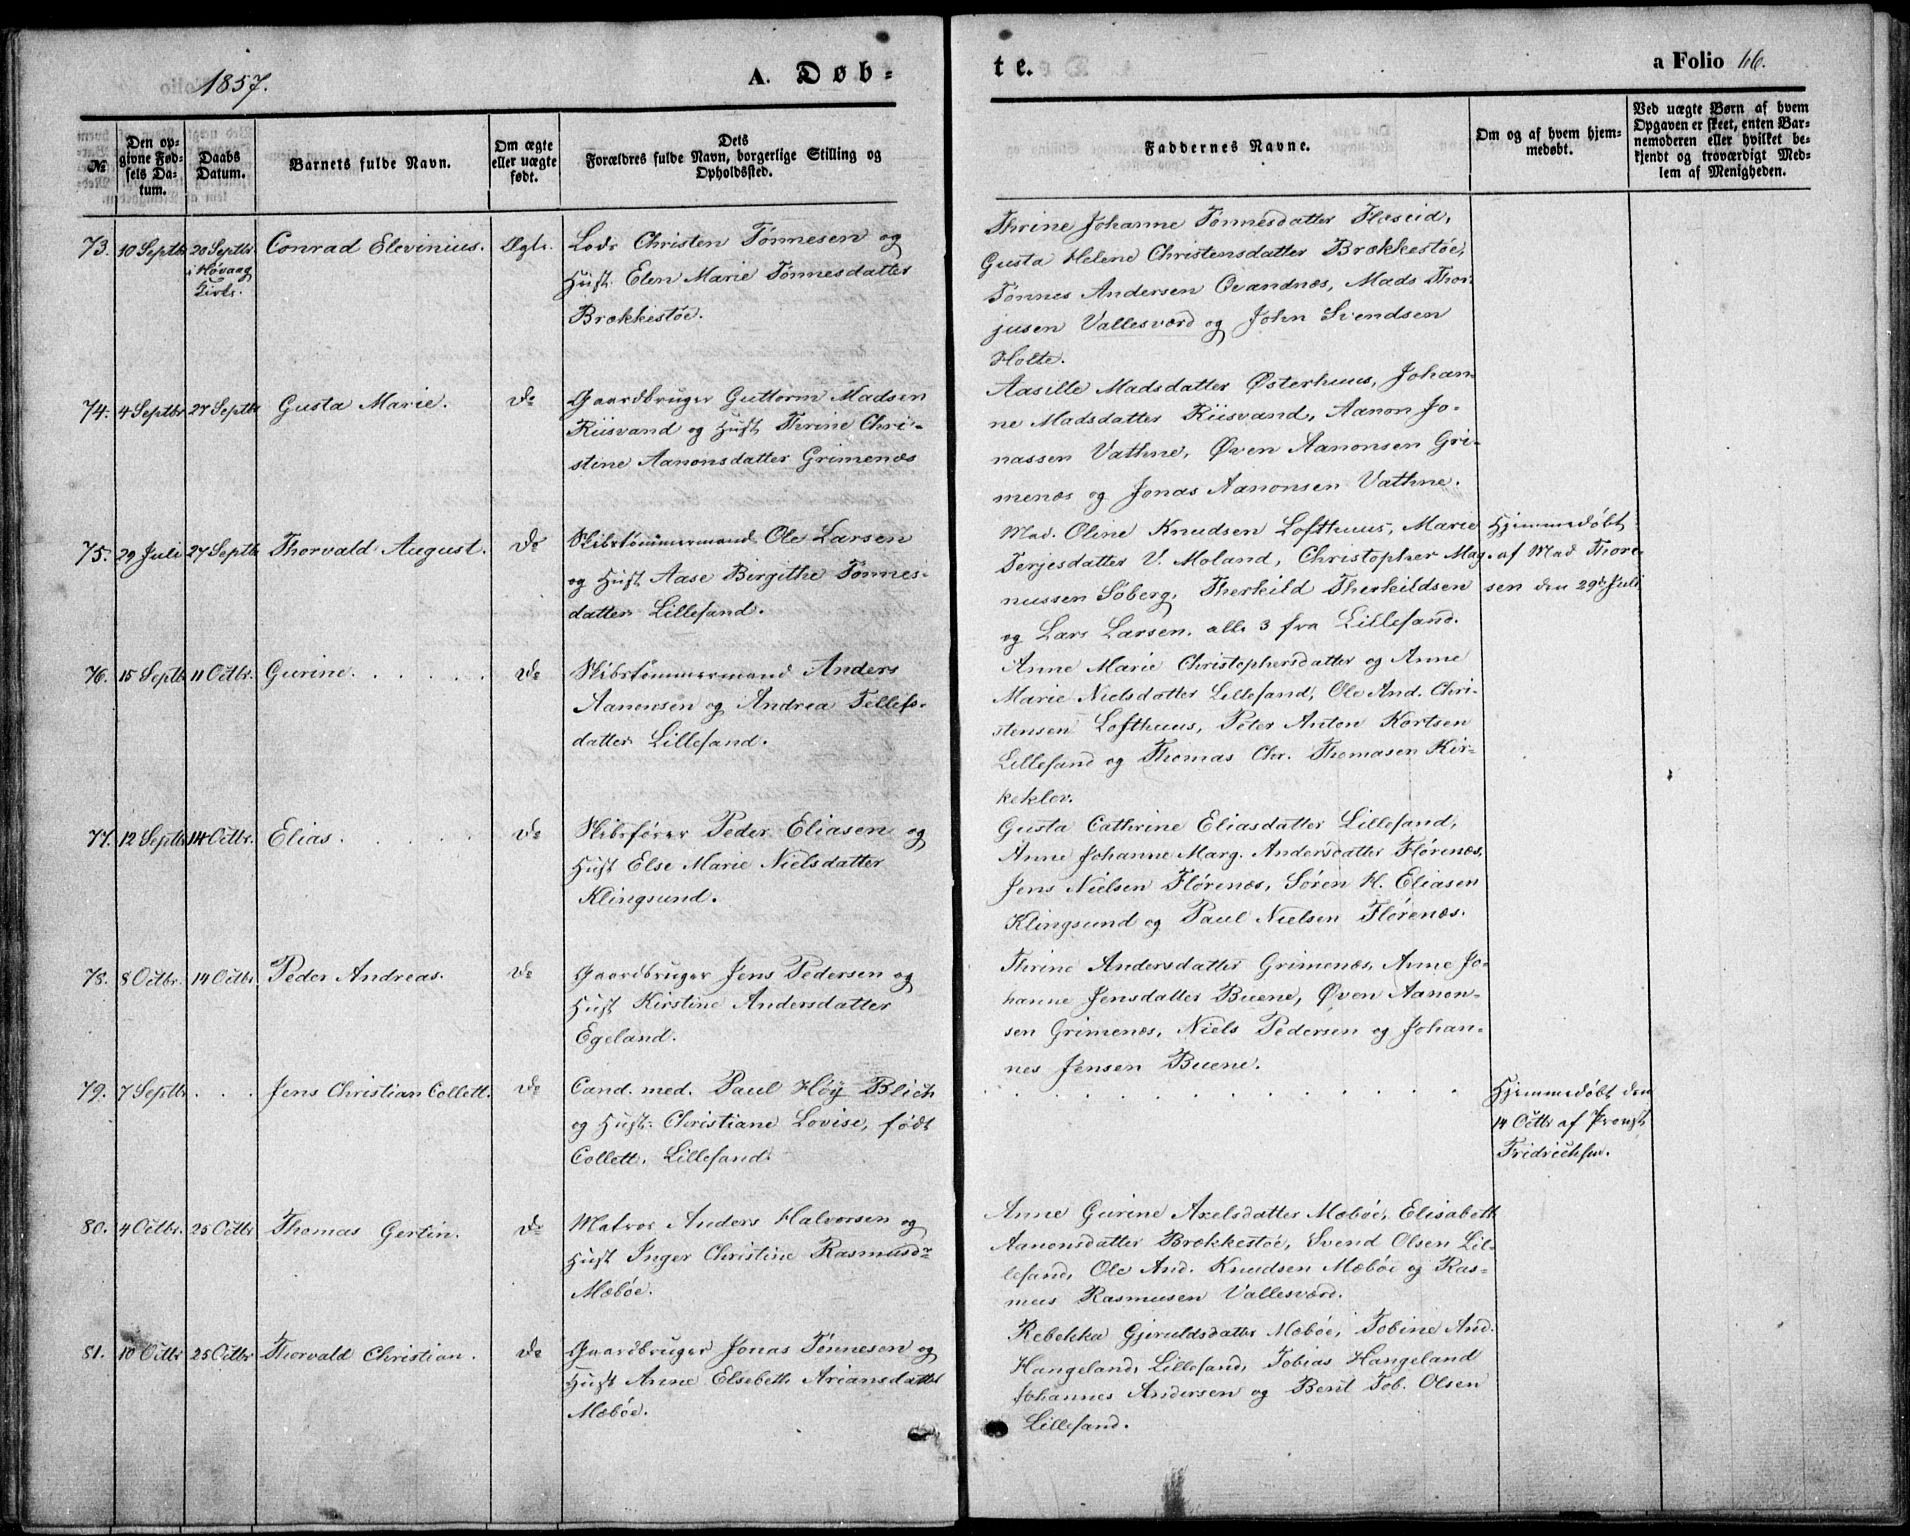 1857.
A. Døb-
te.
a Folio 66.
№
Den op-
givne Fød-
sels Da-
tum.
Daabs
Datum.
Barnets fulde Navn.
Om ægte
eller uægte
født.
Dets
Forældres fulde Navn, borgerlige Stilling og
Opholdssted.
Faddernes Navne.
Om og af hvem hjem-
medøbt.
Ved uægte Børn af hvem
Opgaven er skeet, enten Bar-
nemoderen eller hvilket be-
kjendt og troværdigt Med-
lem af Menigheden.
73. 10 Septbr. 20 Septbr. i Høvaag Kirke. Conrad Elevinius. Ægte.
Lods Christen Tønnesen og
Hust. Elen Marie Tønnesdatter
Brækkestøe.
Thrine Johanne Tønnesdatter
Gusta Helene Christensdatter Brækkestøe,
Tønnes Andersen Qvandnæs, Mads Thor-
jusen Vallesværd og John Svendsen
Holte.
74. 4 Septbr 27 Septbr Gusta Marie. Do
Gaardbruger Guttorm Madsen
Riisvand og Hust Thrine Chri-
stine Aanonsdatter Grimenæs
Aasille Madsdatter Østerhuus, Johan-
ne Madsdatter Riisvand, Aanon Jo-
nassen Vathne, Øven Aanonsen Gri-
menæs og Jonas Aanonsen Vathne.
75. 29 Juli 27 Septbr Thorvald August. Do
Skibstømmermand Ole Larsen
og Hust Aase Birgithe Tønnes-
datter Lillesand.
Mad. Oline Knudsen Lofthuus, Marie
Terjesdatter V. Moland, Christopher Mag-
nussen Søberg, Therkild Therkildsen
og Lars Larsen. alle 3 fra Lillesand.
Hjemmedøbt
af Mad Thore-
sen den 29de Juli
76. 15 Septbr 11 Octbr. Gurine. Do
Skibstømmermand Anders
Aanonsen og Andrea Tellefs-
datter Lillesand.
Anne Marie Christophersdatter og Anne
Marie Nielsdatter Lillesand, Ole And. Chri-
stensen Lofthuus, Peter Anton Kortsen
Lillesand og Thomas Chr. Thomasen Kir-
kekler.
77. 12 Septbr 14 Octbr. Elias. Do
Skibsfører Peder Eliasen og
Hust Else Marie Nielsdatter
Klingsund.
Gusta Cathrine Eliasdatter Lillesand,
Anne Johanne Marg. Andersdatter Flørenæs,
Jens Nielsen Flørenæs, Søren H. Eliasen
Klingsund og Paul Nielsen Flørenæs.
78. 8 Octbr. 14 Octbr. Peder Andreas. Do
Gaardbruger Jens Pedersen og
Hust Kirstine Andersdatter
Egeland.
Thrine Andersdatter Grimenæs, Anne Jo-
hanne Jensdatter Buene, Øven Aanon-
sen Grimenæs, Niels Pedersen og Johan-
nes Jensen Buene.
79. 7 Septbr. . . . Jens Christian Collett. Do
Cand. med. Paul Høy Blich
og Hust. Christiane Lovise, født
Collett. Lillesand.
Hjemmedøbt den
14 Octbr af Provst
Fridrichsen.
80. 4 Octbr. 25 Octbr Thomas Gertin. Do
Matros Anders Halvorsen og
Hust Inger Christine Rasmusdr
Mæbøe.
Anne Gurine Axelsdatter Mæbøe, Elisabeth
Aanonsdatter Brækkestøe, Svend Olsen Lil-
lesand, Ole And. Knudsen Mæbøe og Ras-
mus Rasmusen Vallesværd.
81. 10 Octbr 25 Octbr Thorvald Christian. Do
Gaardbruger Jonas Tønnesen og
Hust Anne Elsebeth Ariansdatter
Mæbøe.
Rebekka Gjeruldsdatter Mæbøe, Tobine And.
Hangeland, Lillesand, Tobias Hangeland
Johannes Andersen og Berit Tob. Olsen
Lillesand.